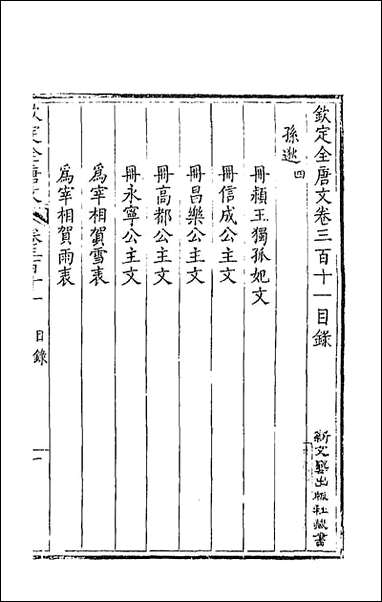 欽定全唐文卷三百十一目錄
新文藝出版社藏書
孫逖四
冊潁王獨孤妃文
冊信成公主文
冊昌樂公主文
冊高都公主文
冊永寧公主文
爲宰相賀雪表
爲宰相賀雨表
欽定全唐文 卷三百十一 目錄 一